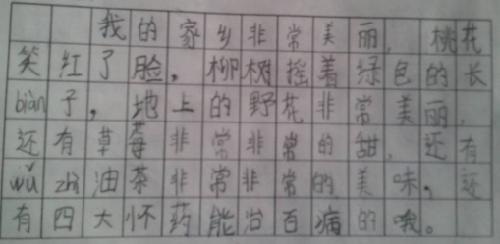 我的家乡非常美丽，桃花
笑红了脸，柳树摇着绿色的长
biàn子，地上的野花非常美丽，
还有草莓非常非常的甜，还有
wǔ zhì油茶非常非常的美味，还
有四大怀药能治百病的哦。